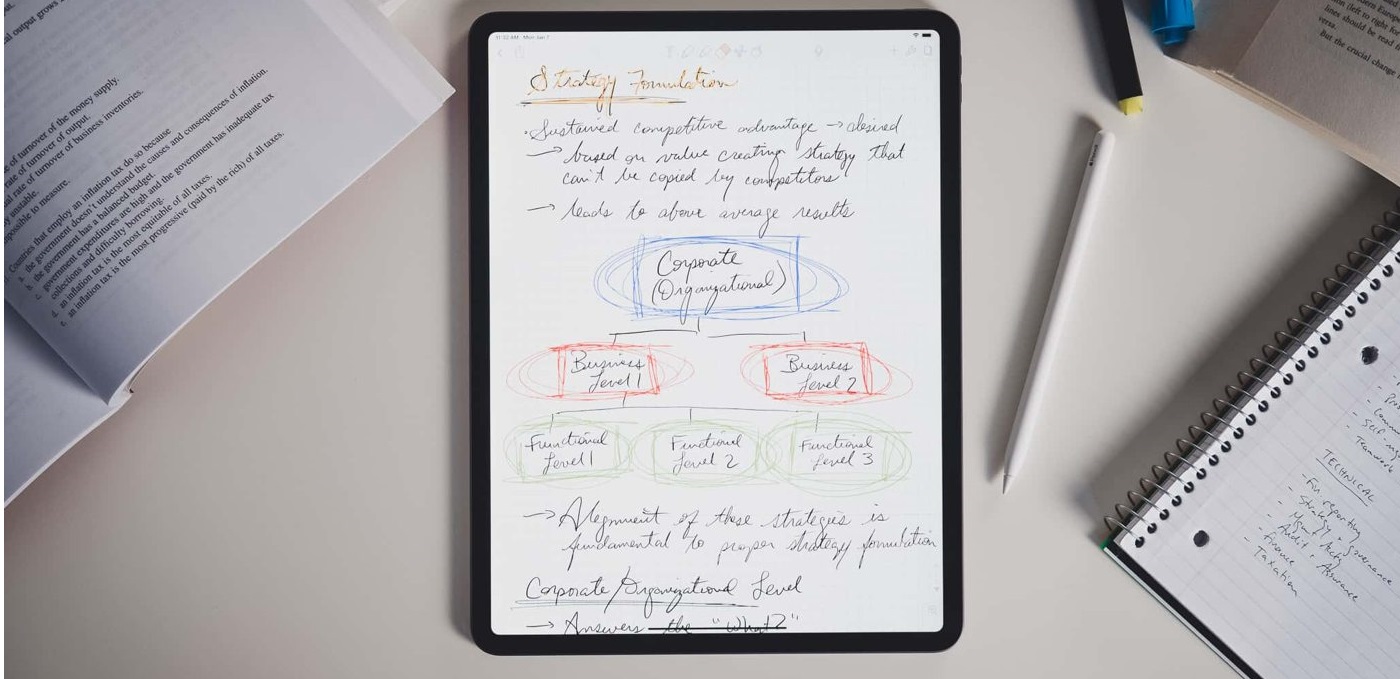 al output grows
of turnover of the money supply.
rate of turnover of output.
al rate of turnover of business inventories.
unstable.
possible to measure.
Countries that employ an inflation tax do so because
a. the government doesn't understand the causes and consequences of inflation.
b. the government has a balanced budget.
c. government expenditures are high and the government has inadequate tax
collections and difficulty borrowing.
d. an inflation tax is the most equitable of all taxes.
e. an inflation tax is the most progressive (paid by the rich) of all taxes.
11:32 AM Mon Jan 7
Strategy Formulation
.Sustained competitive advantage → desired
→ based on value creating strategy that
can't be copied by competitors
→ leads to above average results
Corporate
(Organizational)
Business
Level 1
Business
Level 2
Functional
Level 1
Functional
Level 2
Functional
Level 3
→ Alignment of these strategies is
fundamental to proper strategy formulation
Corporate/Organizational Level
→ Answers the "What?"
(left to right for
lines should be read
versa.
But the crucial change
- Teamwork
TECHNICAL
- Fin reporting
- Strategy + governance
- Mgmt Acctg
- Audit + Assurance
- Finance
- Taxation